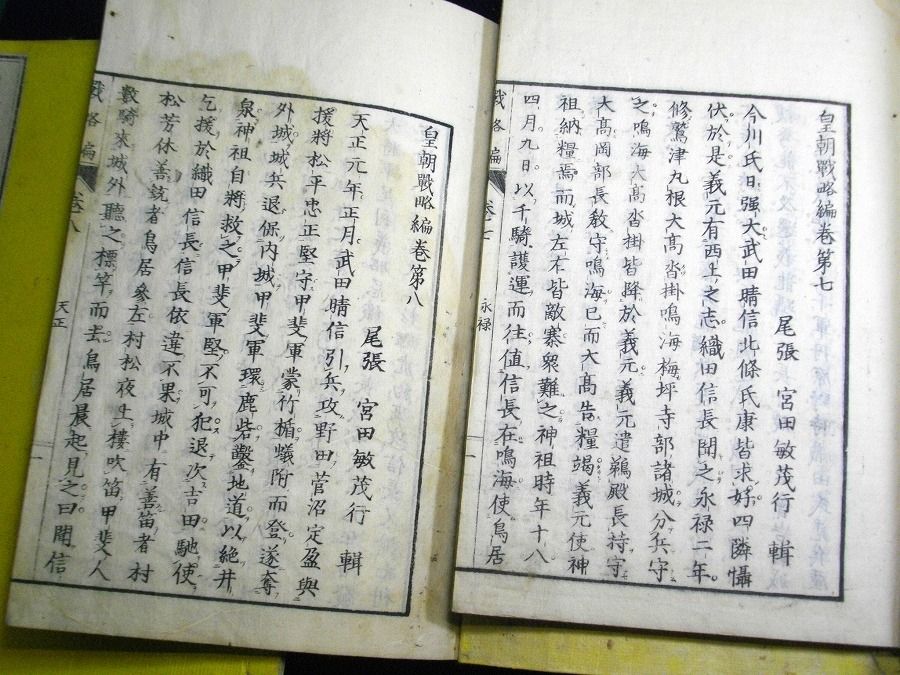 皇朝戰略編巻第七
尾張　宮田敏茂行　輯
今川氏日强大武田晴信北條氏康皆求好四隣懾
伏於是義元有西上之志織田信長聞之永禄二年
修鷲津丸根大髙沓掛鳴海梅坪寺部諸城分兵守
之鳴海大髙沓掛皆降於義元義元遣鵜殿長持守
大髙岡部長敎守鳴海已而大髙告糧竭義元使神
祖納糧焉而城左右皆敵寨衆難之神祖時年十八
四月九日以千騎護運而往値信長在鳴海使鳥居
戰略編
巻七
永禄
皇朝戰略編巻第八
尾張　宮田敏茂行　輯
天正元年正月武田晴信引兵攻野田菅沼定盈與
援將松平忠正堅守甲斐軍蒙竹楯蟻附而登遂奪
外城城兵退保内城甲斐軍環鹿砦鑿地道以絶井
泉神祖自將救之甲斐軍堅不可犯退次吉田馳使
乞援於織田信長信長依違不果城中有善笛者村
松芳休善銃者鳥居參左村松夜上樓吹笛甲斐人
數騎來城外聽之標竿而去鳥居晨起見之曰聞信
戰略編
巻八
天正